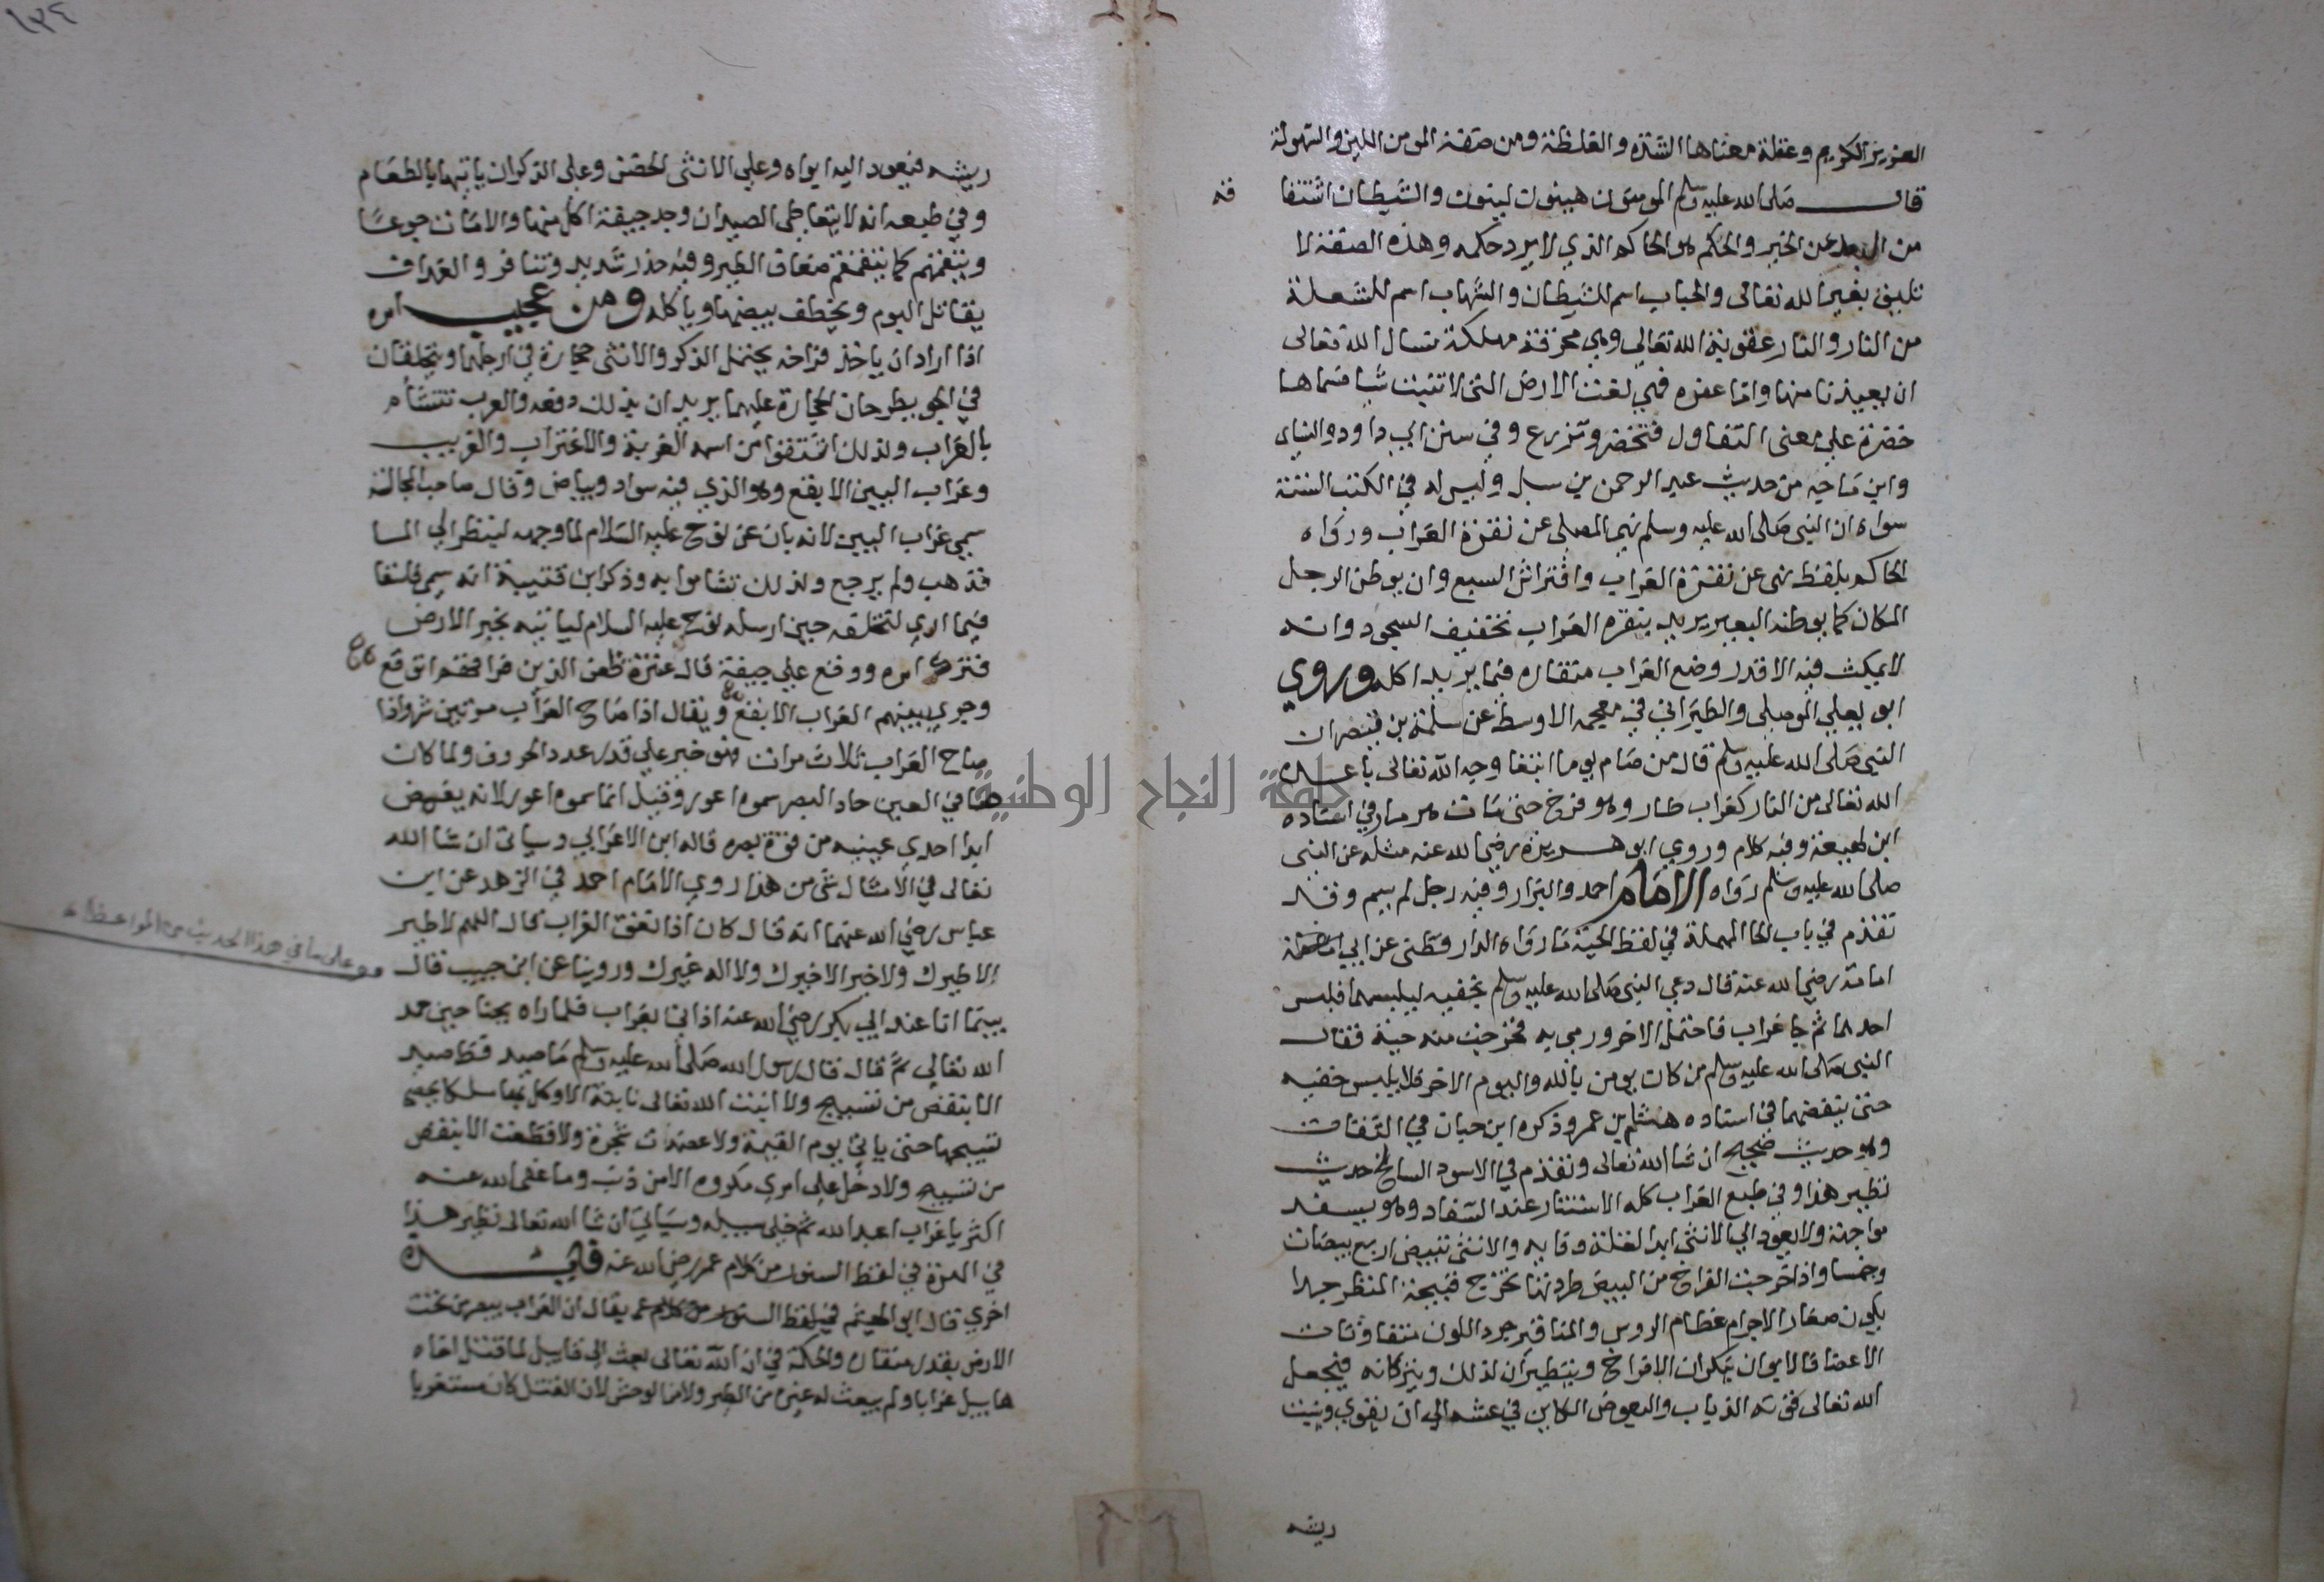 العزيز الكريم وعتلة معناها الشدة والغلظة ومن صفة المومن اللين والسهولة
قال صلى الله عليه وسلم المومنون هينون لينون والشيطان اشتقا
قه
من البعد عن الخير والحكم هو الحاكم الذي لا يرد حكمه وهذه الصفة لا
تليق بغير الله تعالى والحباب اسم للشيطان والشهاب اسم للشعلة
من النار والنار عقوبة الله تعالى وهي محرقة مهلكة نسال الله تعالى
ان يعيذنا منها واما عفره فهي لغت الارض التي لا تنبت شيا فسماها
خضرة على معنى التفاول فتخضر وتزرع وفي سنن ابي داود والنساي
وابن ماجه من حديث عبد الرحمن بن سبل وليس له في الكتب الستة
سواه ان النبي صلى الله عليه وسلم نهى المصلى عن نقرة الغراب ورواه
الحاكم بلفظ نهى عن نقرة الغراب وافتراش السبع وان يوطن الرجل
المكان كما يوطنه البعير يريد بنقره الغراب تخفيف السجود وانه
لا يمكث فيه الا قدر وضع الغراب منقاره فيما يريد اكله وروي
ابو يعلي الموصلي والطبراني في معجمه الاوسط عن سلمة بن قيصر ان
النبي صلى الله عليه وسلم قال من صام يوما ابتغا وجه الله تعالى باعده
الله تعالى من النار كغراب طار وهو فرخ حتى مات هرما وفي اسناده
ابن لهيعة وفيه كلام وروي ابو هريرة رضي الله عنه مثله عن النبي
صلى الله عليه وسلم رواه الامام احمد والبزار وفيه رجل لم يسم وقد
تقدم في باب الحا المهملة في لفظ الحية ما رواه الدارقطني عن ابي
امامة رضي الله عنه قال دعي النبي صلى الله عليه وسلم بخفيه ليلبسهما فلبس
احدهما ثم جا غراب فاحتمل الاخر ورمى به فخرجت منه حية فقال
النبي صلى الله عليه وسلم من كان يومن بالله واليوم الاخر فلا يلبس خفيه
حتى ينفضهما في اسناده هشام بن عمرو ذكره ابن حبان في الثقات
وهو حديث صحيح ان شا الله تعالى وتقدم في الاسود السالخ حديث
نظير هذا وفي طبع الغراب كله الاستتار عند السفاد وهو يسفد
مواجهة ولا يعود الي الانثى ابدا لقلة وفايه والانثى تبيض اربع بيضات
وخمسا واذا خرجت الفراخ من البيض طردتها تخرج قبيحة المنظر جدا
يكون صغار الاجرام عظام الروس والمناقير جرد اللون متفاوتات
الاعضا فالابوان ينكران الافراخ ويتطيران لذلك ويتركانه فيجعل
الله تعالى قوته الذباب والبعوض الكاين في عشه الي ان يقوي وينبت
ريشه
ريشه فيعود اليه ابواه وعلى الانثى الحضن وعلى الذكر ان ياتيها بالطعام
وفي طبعه انه لا يتعاطى الصيد ان وجد جيفة اكل منها والا مات جوعا
ويتقمم كما يتقمم ضعاف الطير وفيه حذر شديد وتنافر والغداف
يقاتل البوم ويخطف بيضها وياكله ومن عجيب امره
اذا اراد ان ياخذ فراخه يحتمل الذكر والانثى حجارة في ارجلهما ويتحلقان
في الجو يطرحان الحجارة عليهما يريدان بذلك دفعه والعرب تتشام
بالغراب ولذلك اشتقوا من اسمه الغربة والاغتراب والغريب
وغراب البين الابقع وهو الذي فيه سواد وبياض وقال صاحب المجالسة
سمي غراب البين لانه بان عن نوح عليه السلام لما وجهه لينظر الي الما
فذهب ولم يرجع ولذلك تشاموا به وذكر ابن قتيبة انه سمي فاسقا
فيما اري لتخلفه حين ارسله نوح عليه السلام لياتيه بخبر الارض
فترك امره ووقع علي جيفة قال عنترة ظعن الذين فراقهم اتوقع
وجري ببينهم الغراب الابقع ويقال اذا صاح الغراب مرتين شر واذا
صاح الغراب ثلاث مرات فهو خير علي قدر عدد الحروف ولما كان
صافي العين حاد البصر سموه اعور وقيل انما سموه اعور لانه يغمض
ابدا احدي عينيه من قوة بصره قاله ابن الاعرابي وسياتي ان شا الله
تعالى في الامثال شي من هذا روي الامام احمد في الزهد عن ابن
عباس رضي الله عنهما انه قال كان اذا نعق الغراب قال اللهم لا طير
الا طيرك ولا خير الا خيرك ولا اله غيرك وروينا عن ابن حبيب قال
بينما انا عند ابي بكر رضي الله عنه اذ اتي بغراب فلما راه بجناحين حمد
الله تعالي ثم قال قال رسول الله صلى الله عليه وسلم ما صيد قط صيد
الا بنقص من تسبيح ولا انبت الله تعالى نابتة الا وكل بها ملكا يحصي
تسبيحها حتى ياتي يوم القيمة ولا عضدت شجرة ولا قطعت الا بنقص
من تسبيح ولا دخل على امري مكروه الا من ذنب وما عفى الله عنه
اكثر يا غراب اعبد الله ثم خلي سبيله وسياتي ان شا الله تعالى نظير هذا
في الهرة في لفظ السنور من كلام عمر رضي الله عنه فايدة
اخري قال ابو الهيثم يقال ان الغراب يبصر من تحت
الارض بقدر منقاره والحكمة في ان الله تعالى بعث الى قابيل لما قتل اخاه
هابيل غرابا ولم يبعث له غيره من الطير ولا من الوحش لان القتل كان مستغربا
جامعة النجاح الوطنية
١٣٤